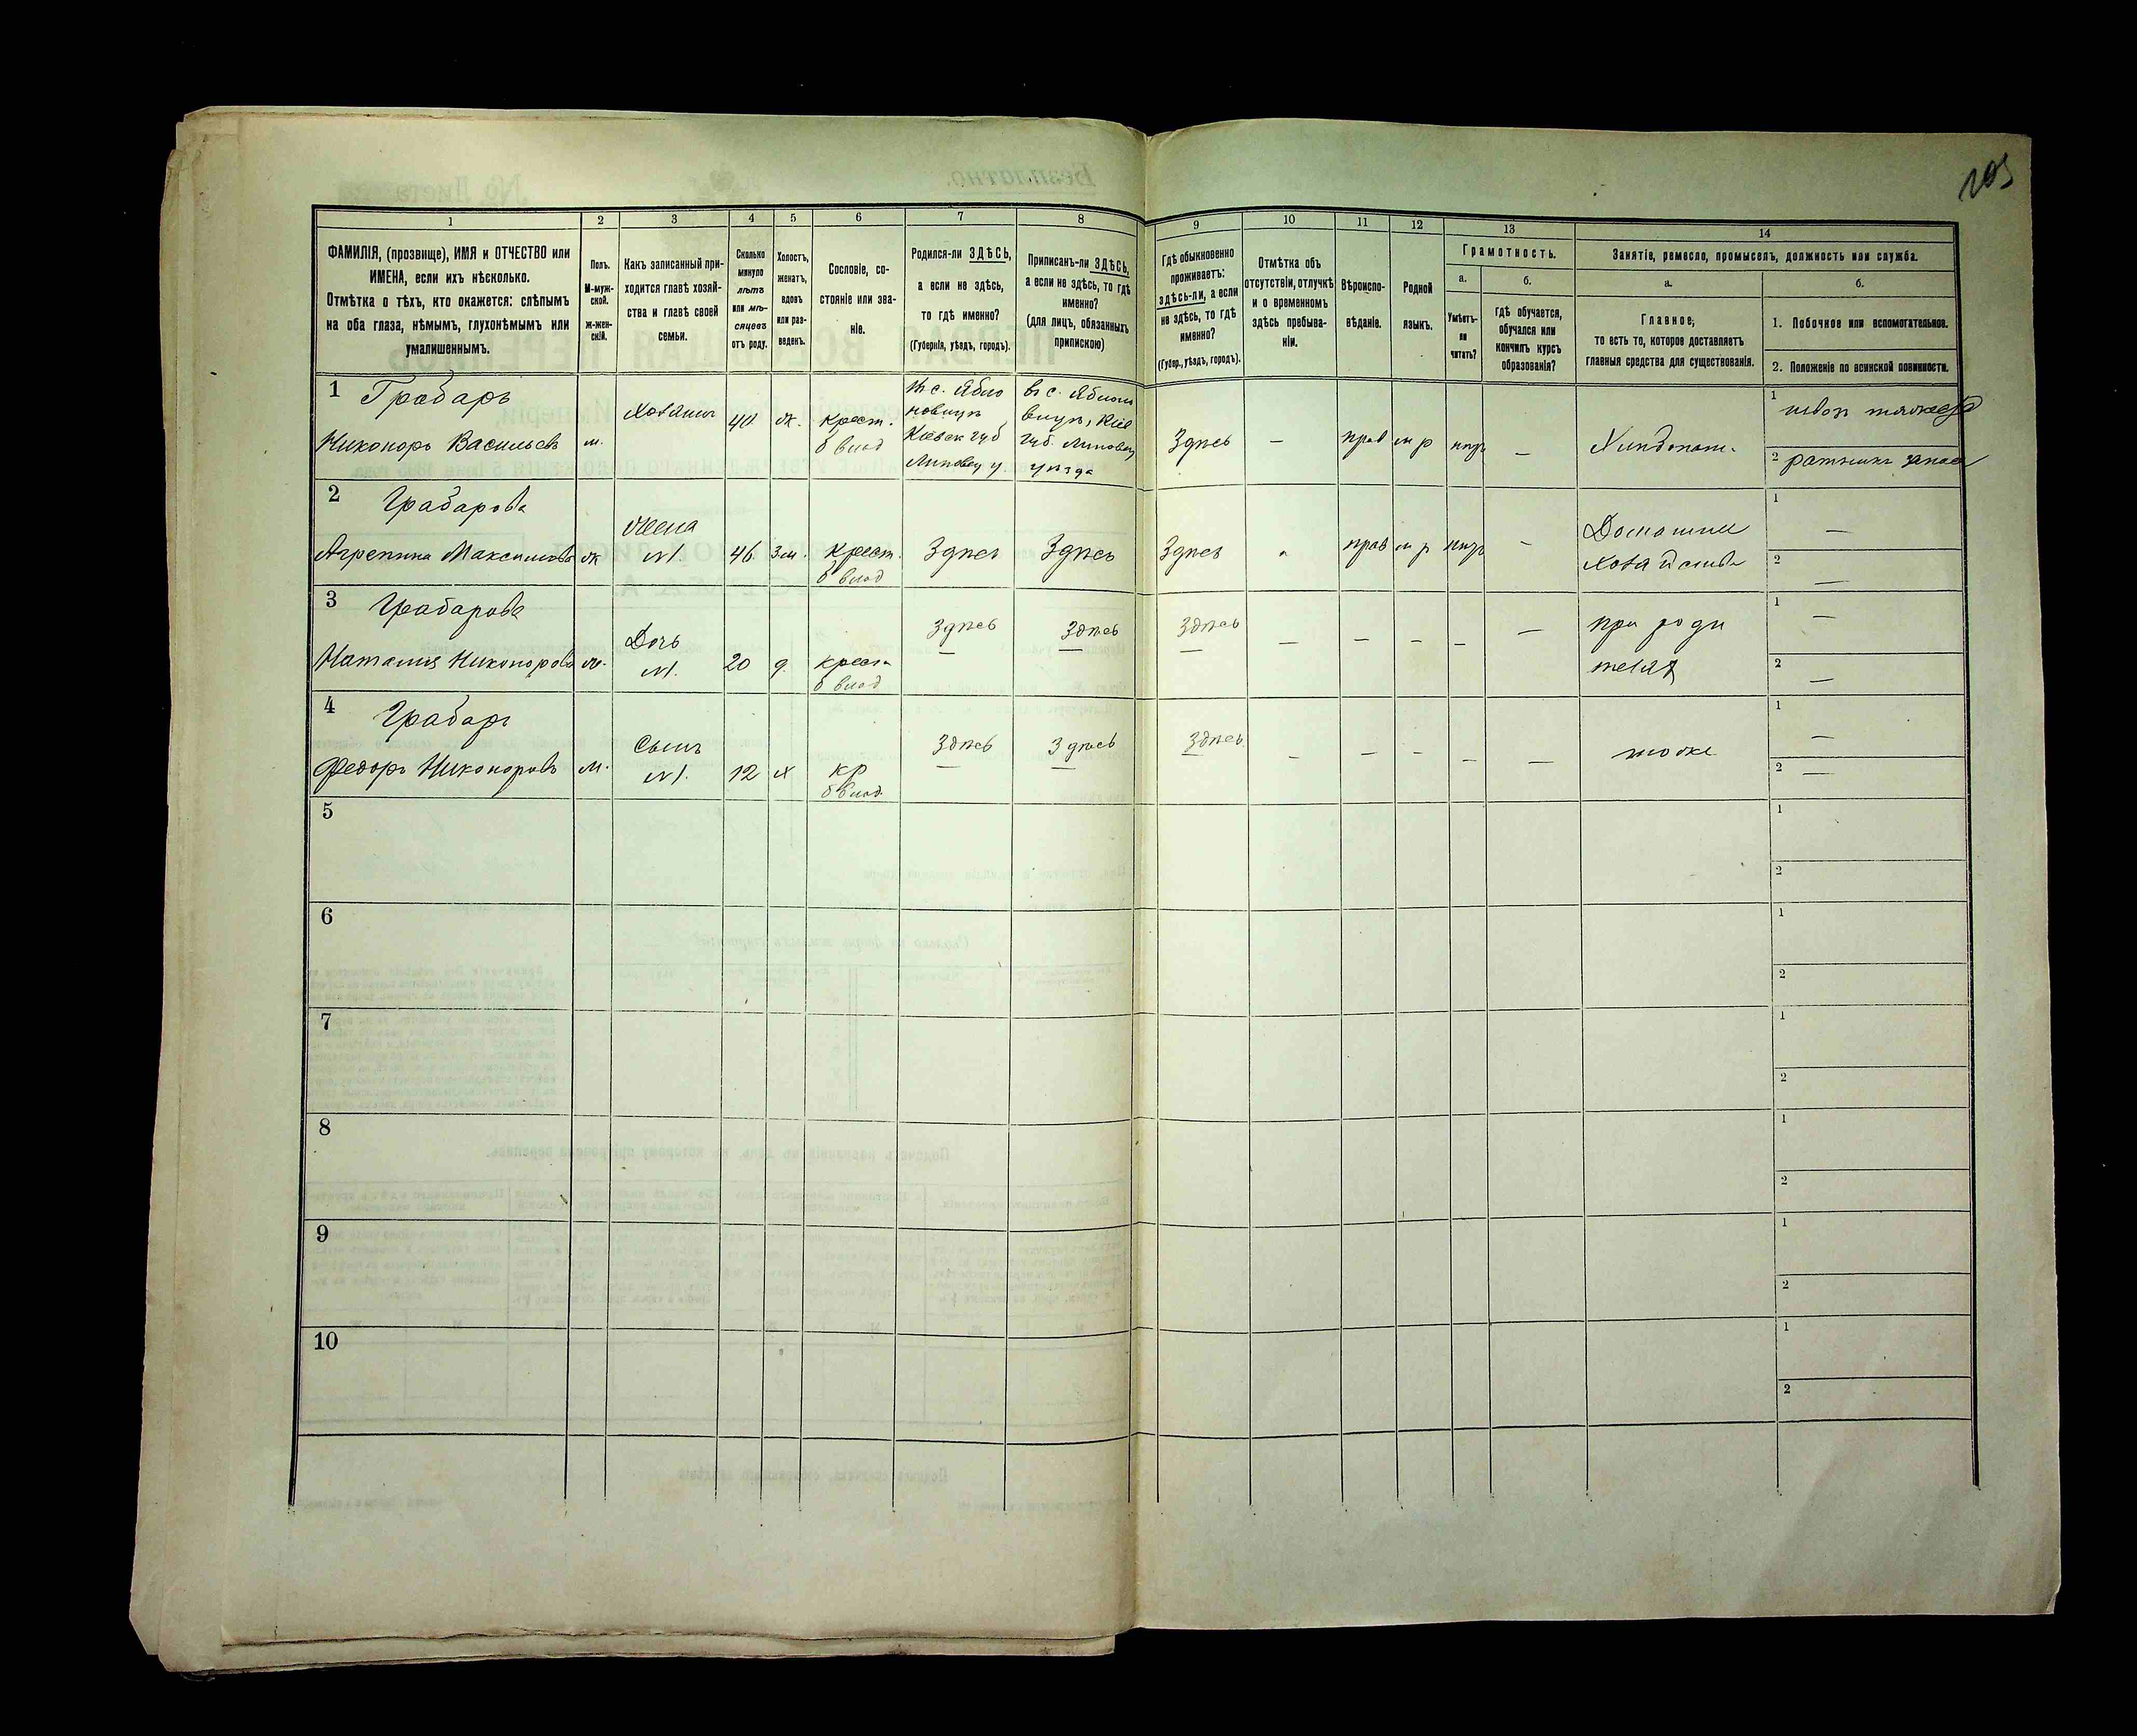 105
1
2
3
4
5
6
7
8
9
10
11
12
13
14
ФАМИЛІЯ, (прозвище), ИМЯ и ОТЧЕСТВО или
ИМЕНА, если ихъ нѣсколько.
Отмѣтка о тѣхъ, кто окажется: слѣпымъ
на оба глаза, нѣмымъ, глухонѣмымъ или
умалишеннымъ.
Полъ.
М-муж-
ской.
ж-жен-
скій.
Какъ записанный при-
ходится главѣ хозяй-
ства и главѣ своей
семьи.
Сколько
минуло
лѣтъ
или мѣ-
сяцевъ
отъ роду.
Холостъ,
женатъ,
вдовъ
или раз-
веденъ.
Сословіе, со-
стояніе или зва-
ніе.
Родился-ли ЗДѢСЬ,
а если не здѣсь,
то гдѣ именно?
(Губернія, уѣздъ, городъ).
Приписанъ-ли ЗДѢСЬ,
а если не здѣсь, то гдѣ
именно?
(для лицъ, обязанныхъ
припискою)
Гдѣ обыкновенно
проживаетъ:
здѣсь-ли, а если
не здѣсь, то гдѣ
именно?
(Губер., уѣздъ, городъ).
Отмѣтка объ
отсутствіи, отлучкѣ
и о временномъ
здѣсь пребыва-
ніи.
Вѣроиспо-
вѣданіе.
Родной
языкъ.
Грамотность.
а.
Умѣетъ-
ли
читать?
б.
Гдѣ обучается,
обучался или
кончилъ курсъ
образованія?
Занятіе, ремесло, промыселъ, должность или служба.
а.
Главное,
то есть то, которое доставляетъ
главныя средства для существованія.
б.
1. Побочное или вспомогательное.
2. Положеніе по воинской повинности.
1
Грабарь
Никоноръ Васильевъ
м.
Хозяинъ
40
ж.
крест.
б влад
Кіевск губ
Липовец у.
губ. Липовец
уѣзда
Здѣсь
—
прав
м р
—
1
2 ратникъ
2
Грабарова
Агрепина Максимова
ж
Жена
м.
46
зм.
крест.
б влад
Здѣсь
Здѣсь
Здѣсь
прав
м р
—
Домашнее
1
—
2
—
3
Грабарова
Наталия Никонорова
Дочь
м.
20
д.
крест
б влад
Здѣсь
Здѣсь
Здѣсь
—
—
—
—
—
при роди
телях
1
—
2
—
4
Грабарь
Федоръ Никоноровъ
м.
Сынъ
м.
12
х
кр
б влад.
Здѣсь
Здѣсь
Здѣсь
—
—
—
—
—
тоже
1
—
2
—
5
1
2
6
1
2
7
1
2
8
1
2
9
1
2
10
1
2